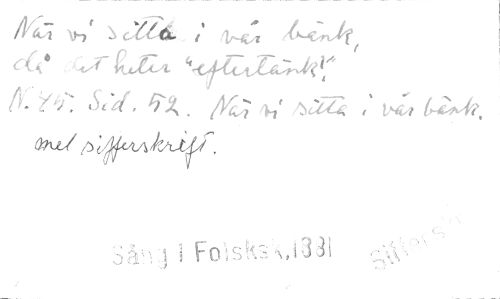 När vi sitta i vår bänk,
då det heter "eftertänk!"
N. 45. Sid. 52. När vi sitta i vår bänk.
mel sifferskrift.
Sång i Folksk., 1881